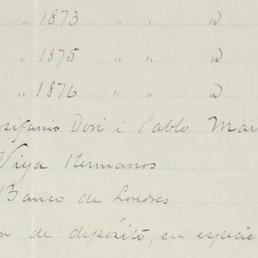 " 1873 " "
" 1875 " "
" 1876 " "
Dori i Pablo
Hermanos
Banco de Londres
de depósito, en especie